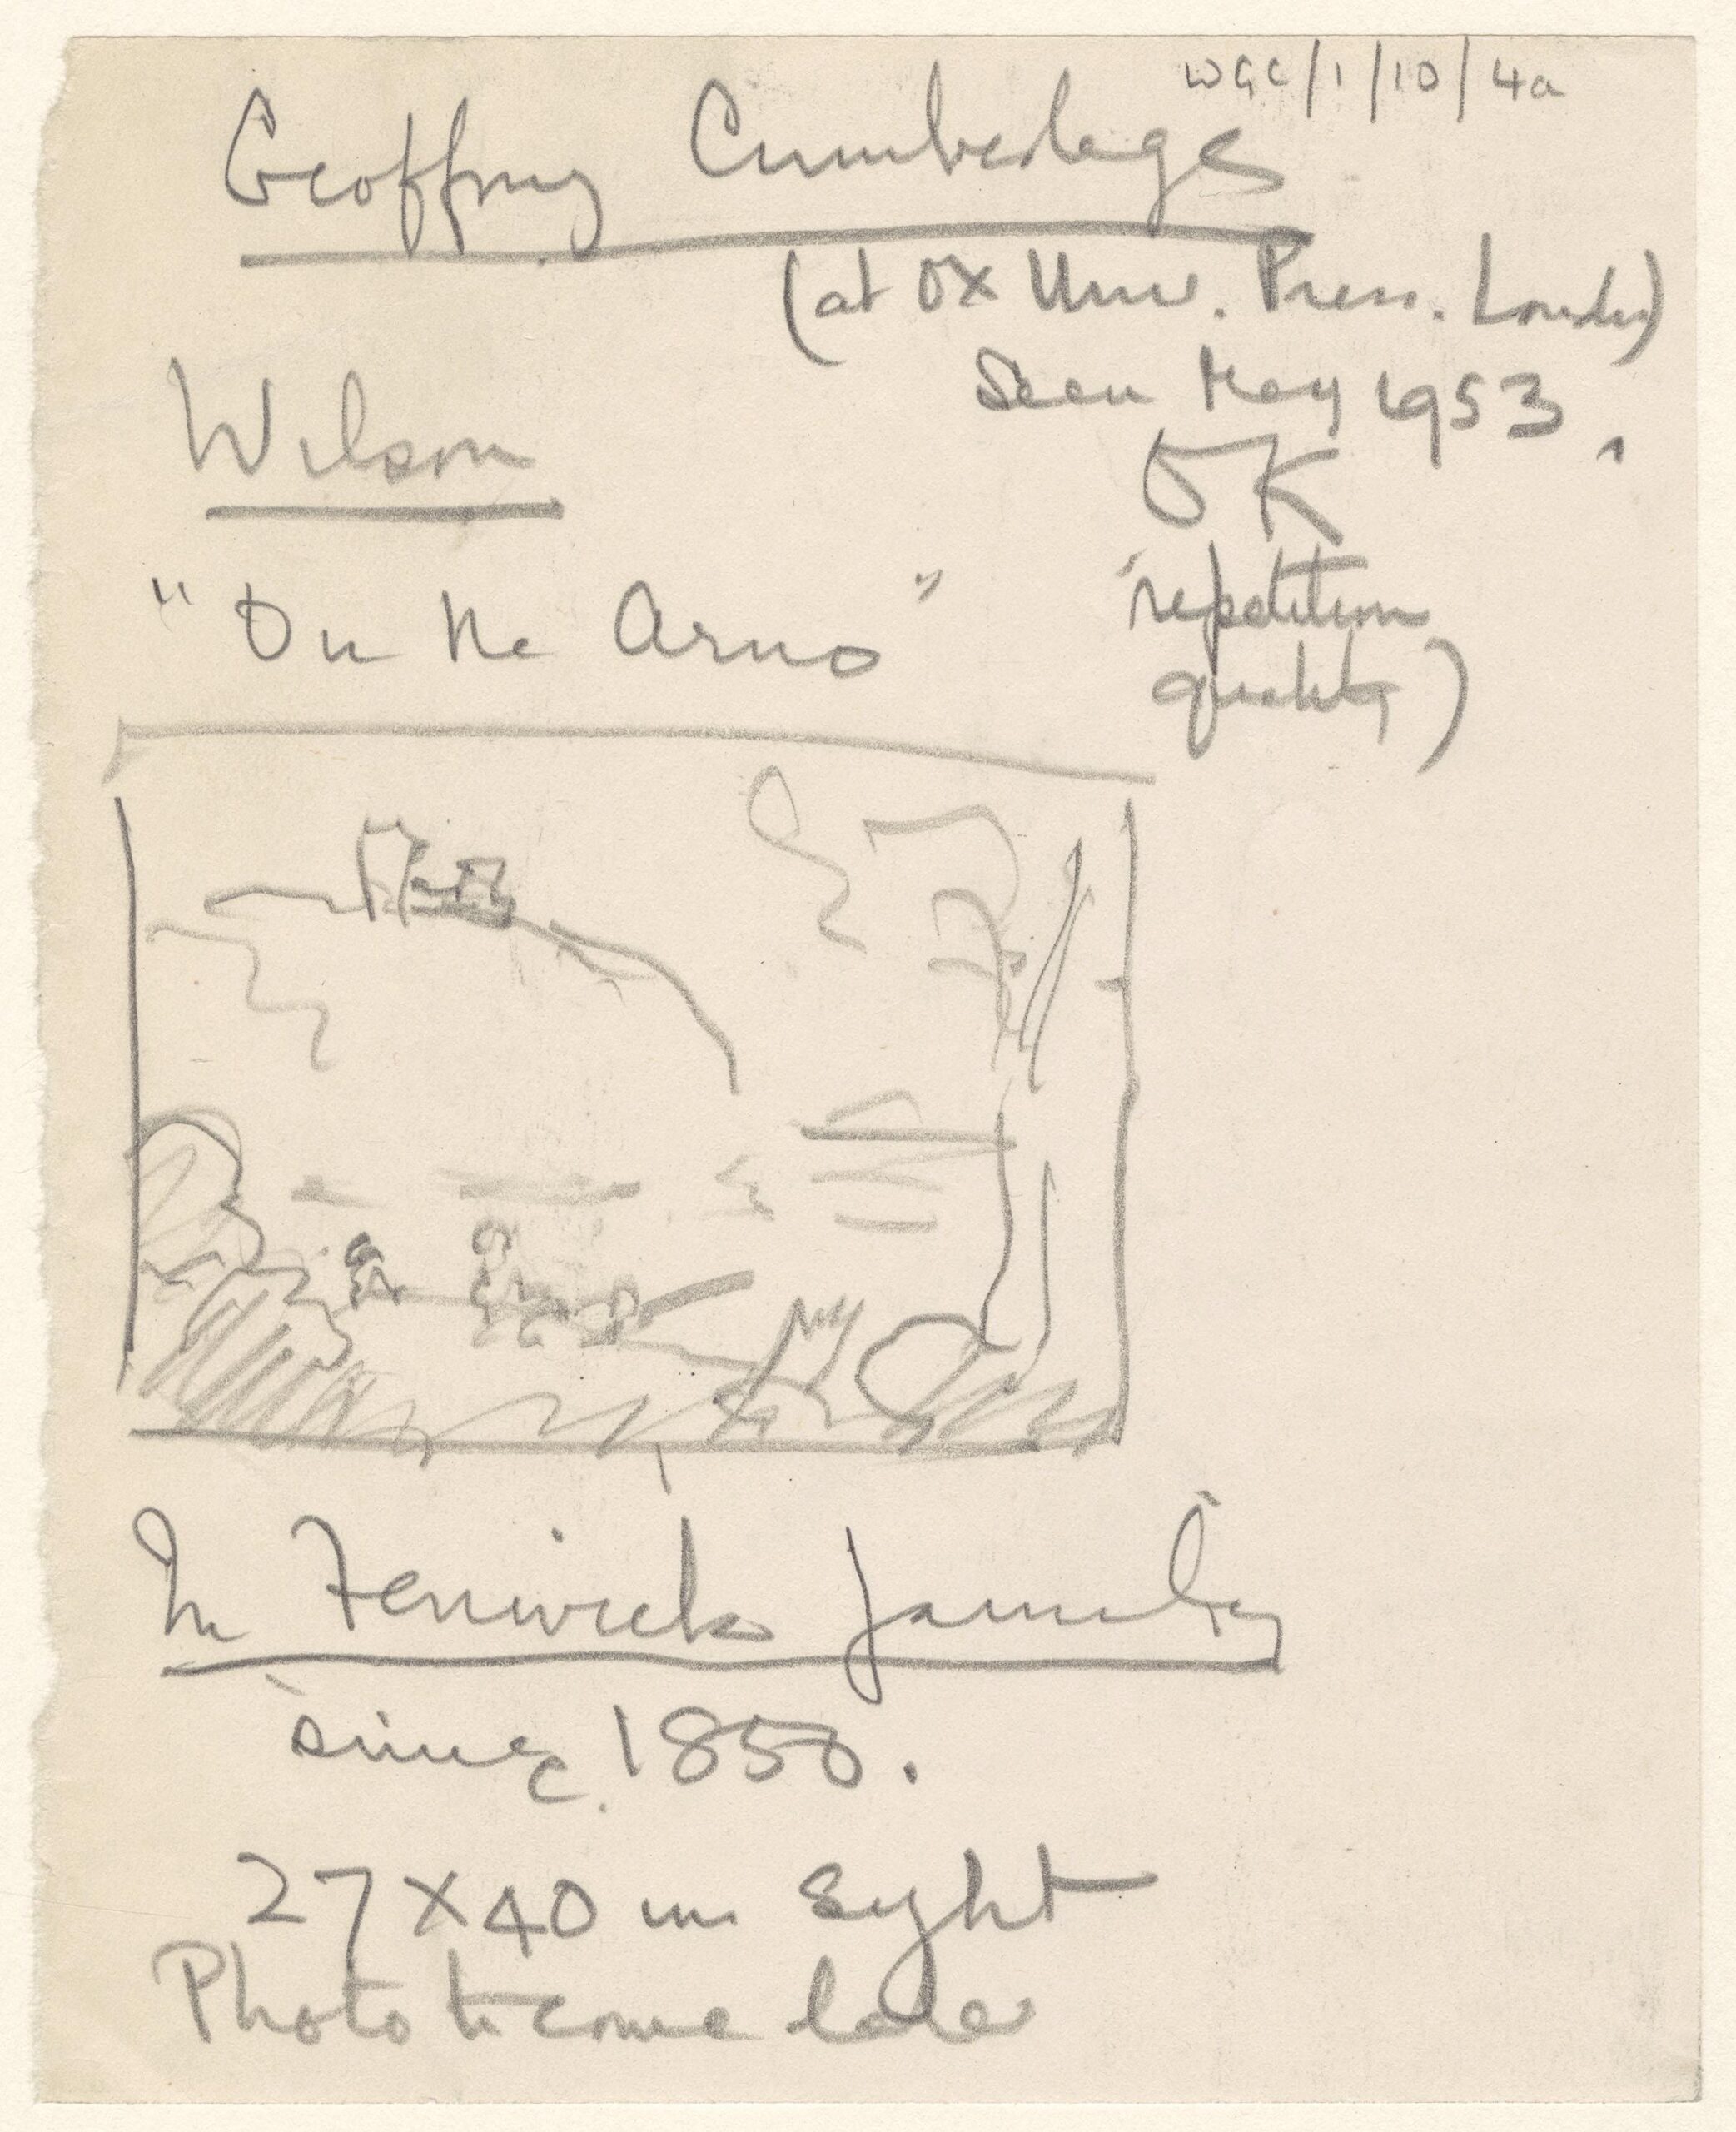 WGC/1/10/4a
Geoffrey Cumberlege
(at OX Univ. Press. London)
Seen May 1953.
Wilson
OK
"On the Arno"
(repetition
quality)
In Fenwick family
since c. 1850.
27 x 40 in sight
Photo to come later